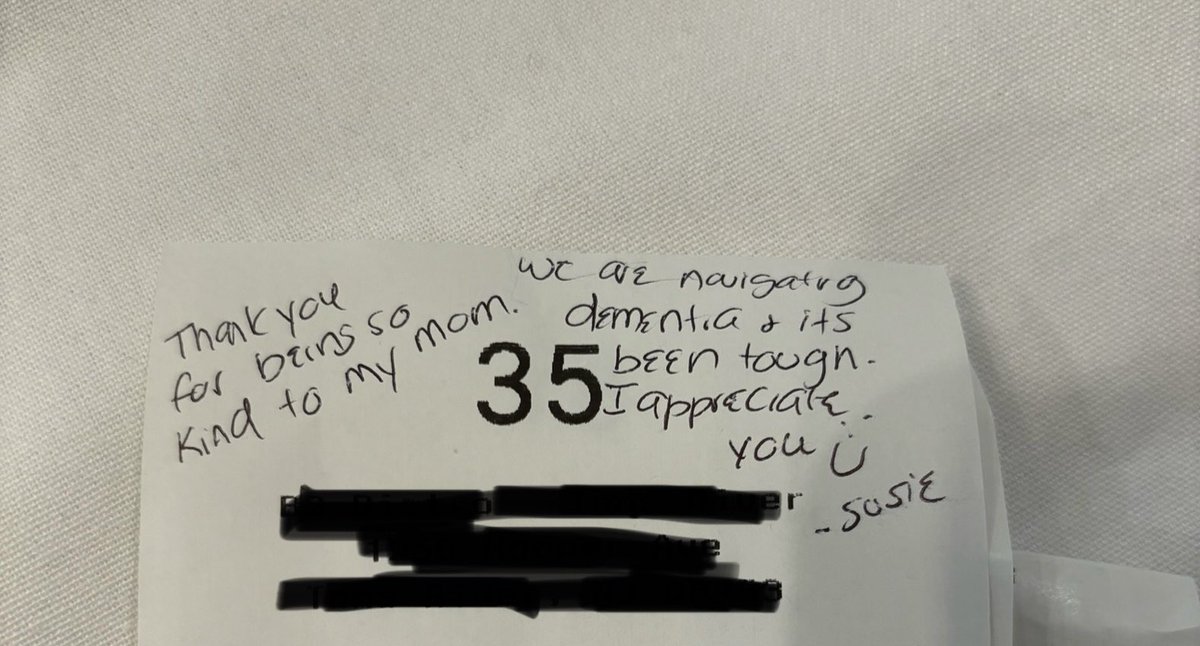 Thank you
for being so
kind to my mom.
We are navigating
dementia & its
been tough.
I appreciate
you
- Susie
35
r